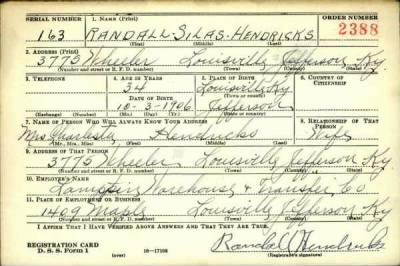 SERIAL NUMBER 1. NAME (Print) ORDER NUMBER
163 RANDALL SILAS HENDRICKS 2388
(First) (Middle) (Last)
2. ADDRESS (Print)
3775 Wheeler Louisville Jefferson Ky
(Number and street or R. F. D. number) (Town) (County) (State)
3. TELEPHONE 4. AGE IN YEARS 5. PLACE OF BIRTH 6. COUNTRY OF CITIZENSHIP
34 Louisville Ky
DATE OF BIRTH (Town or county)
10-3-1906 Jefferson
(Exchange) (No.) (Mo.) (Day) (Yr.) (State or country)
7. NAME OF PERSON WHO WILL ALWAYS KNOW YOUR ADDRESS 8. RELATIONSHIP OF THAT PERSON
Mrs Hendricks Wife
(Mr., Mrs., Miss) (First) (Middle) (Last)
9. ADDRESS OF THAT PERSON
3775 Wheeler Louisville Jefferson Ky
(Number and street or R. F. D. number) (Town) (County) (State)
10. EMPLOYER'S NAME
Warehouse & Transfer Co
11. PLACE OF EMPLOYMENT OR BUSINESS
1409 Magnolia Louisville Jefferson Ky
(Number and street or R. F. D. number) (Town) (County) (State)
I AFFIRM THAT I HAVE VERIFIED ABOVE ANSWERS AND THAT THEY ARE TRUE.
Randall Hendricks
REGISTRATION CARD
D. S. S. Form 1 16-17105 (over) (Registrant's signature)